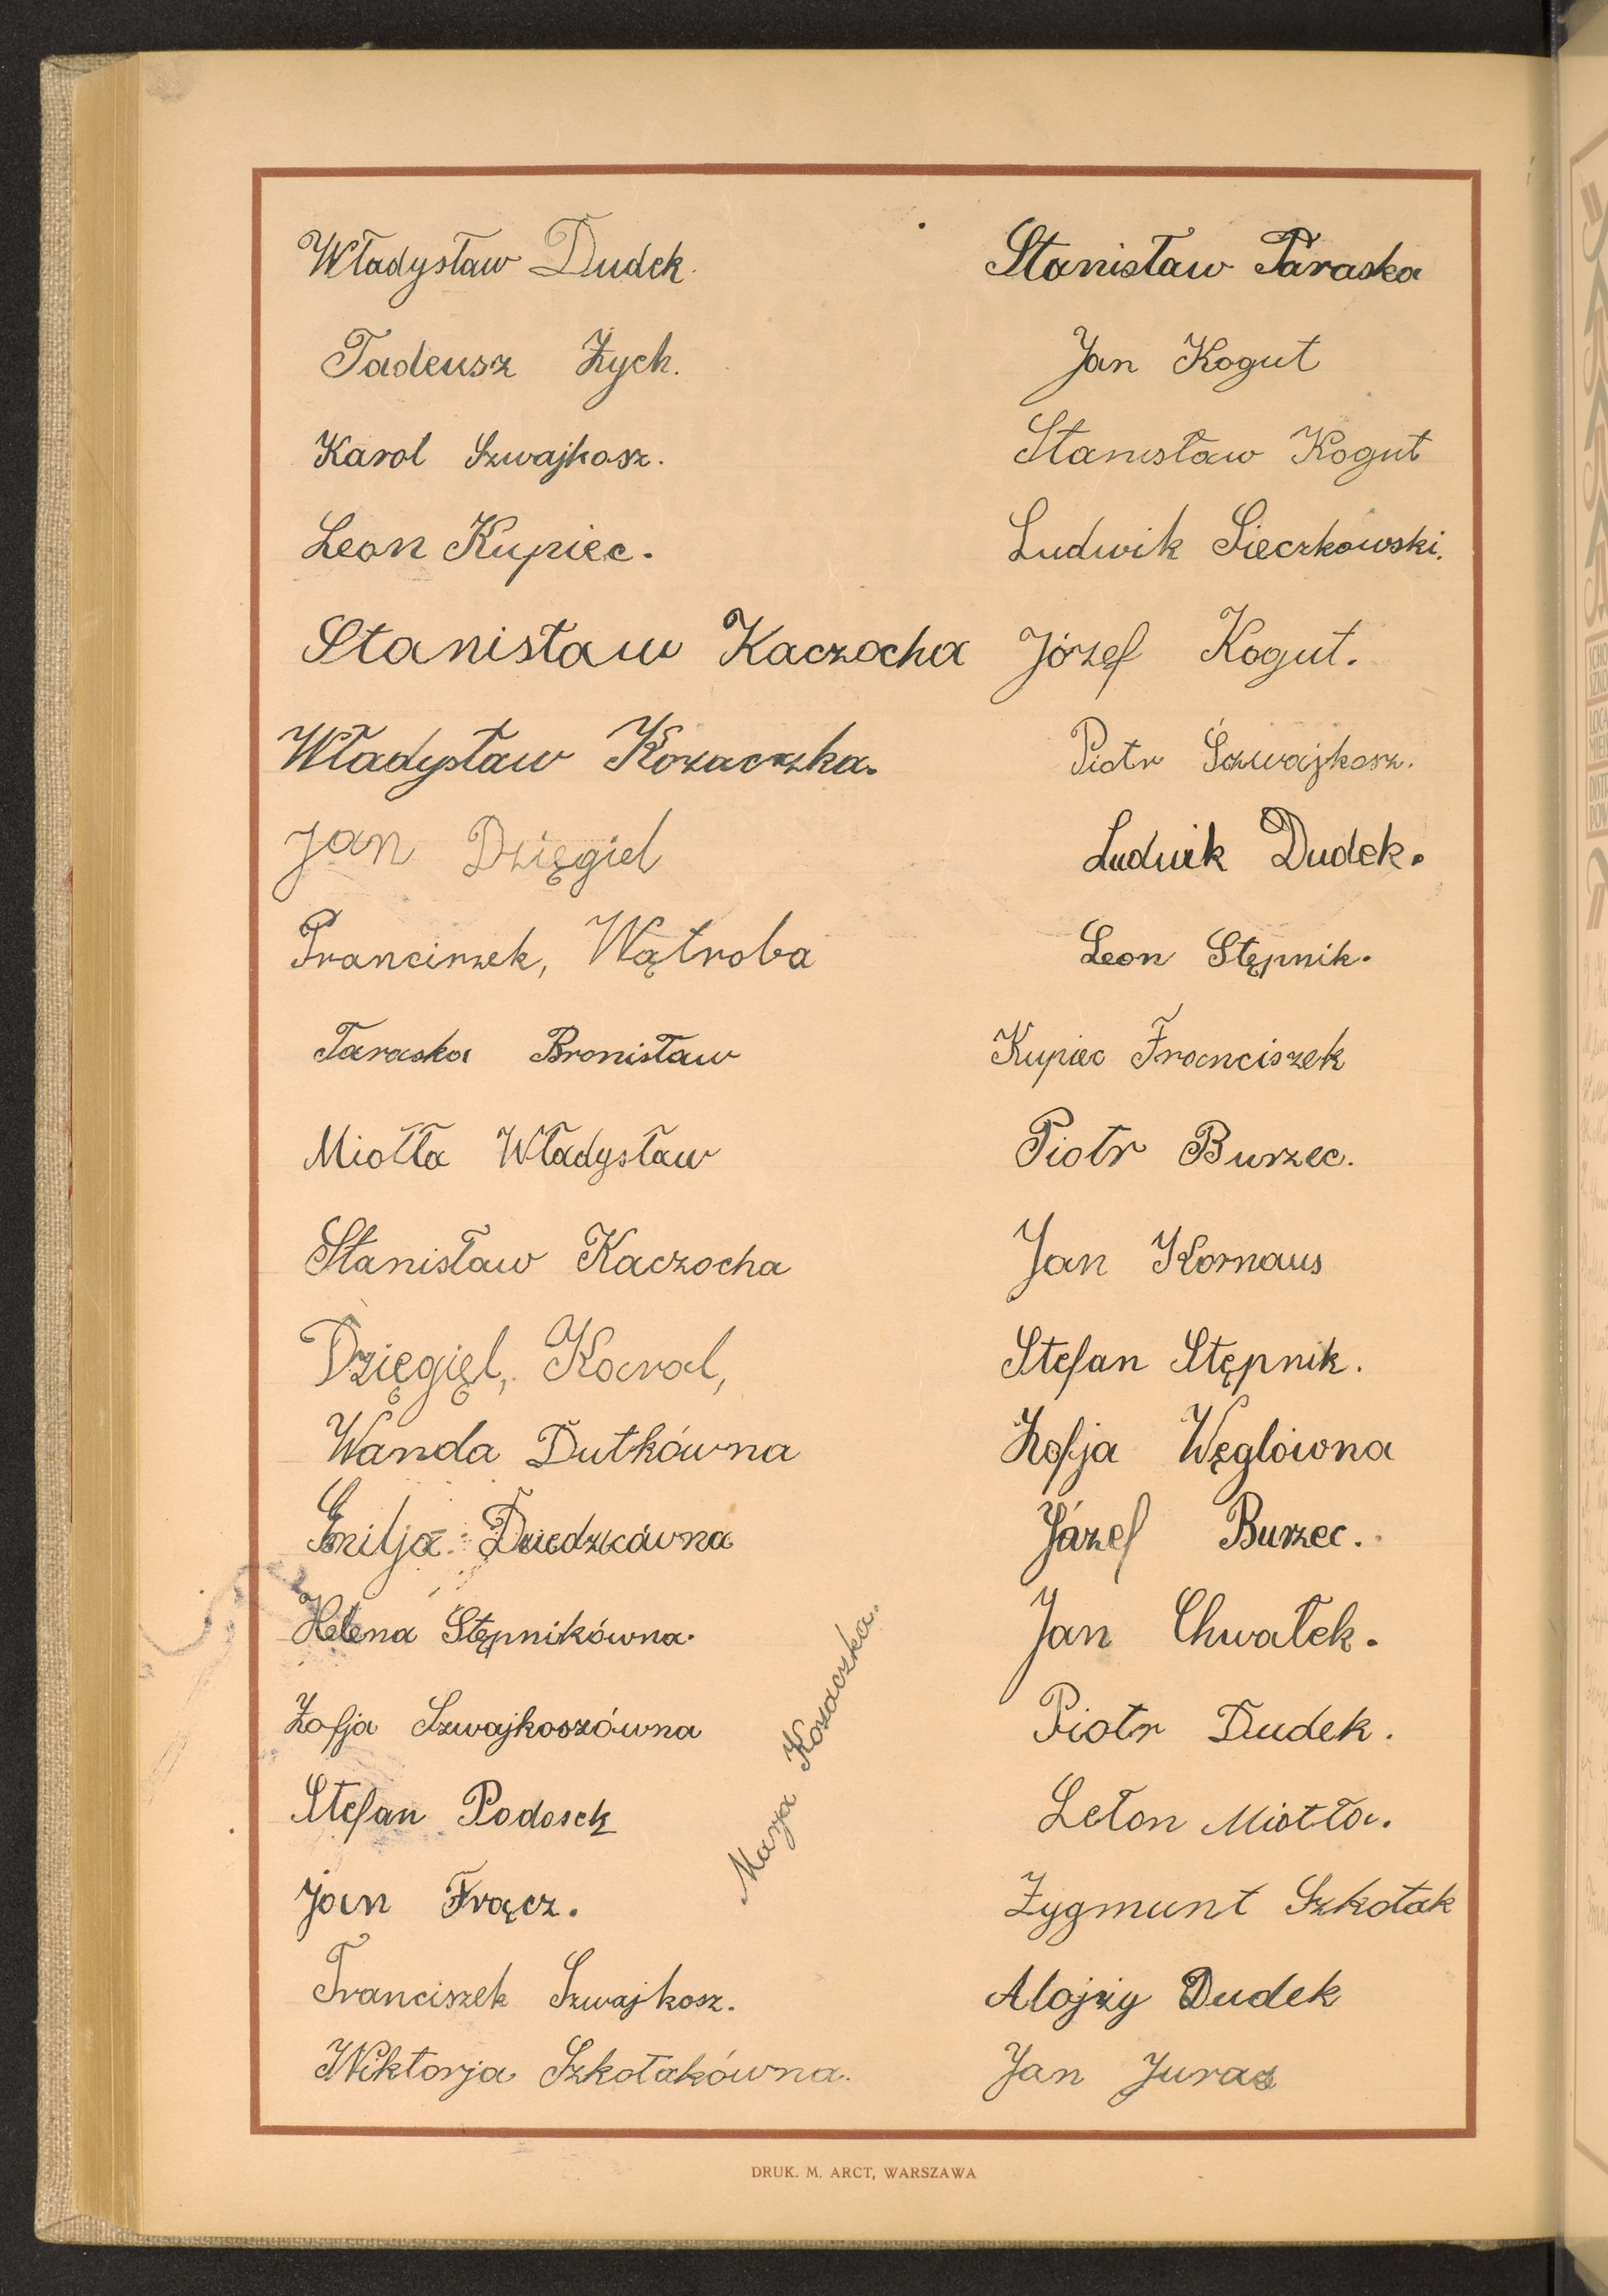 Władysław Dudek.
Tadeusz Zych.
Karol Szwajkosz.
Leon Kupiec.
Stanisław Kaczocha
Władysław Kozaczka.
Jan Dzięgiel
Franciszek, Wątroba
Taraska Bronisław
Miotła Władysław
Stanisław Kaczocha
Dzięgięl, Karol,
Wanda Dutkówna
Emilja Dziedzicówna
Helena Stępnikówna.
Zofja Szwajkoszówna
Stefan Podosek
Jan Frącz.
Franciszek Szwajkosz.
Wiktorja Szkołakówna.
Marja Kozaczka.
Stanisław Taraska
Jan Kogut
Stanisław Kogut
Ludwik Sieczkowski.
Józef Kogut.
Piotr Szwajkosz.
Ludwik Dudek.
Leon Stępnik.
Kupiec Franciszek
Piotr Burzec.
Jan Kornaus
Stefan Stępnik.
Zofja Węglówna
Józef Burzec.
Jan Chwałek.
Piotr Dudek.
Leton Miotła.
Zygmunt Szkołak
Alojzy Dudek
Jan Juras
DRUK. M. ARCT, WARSZAWA